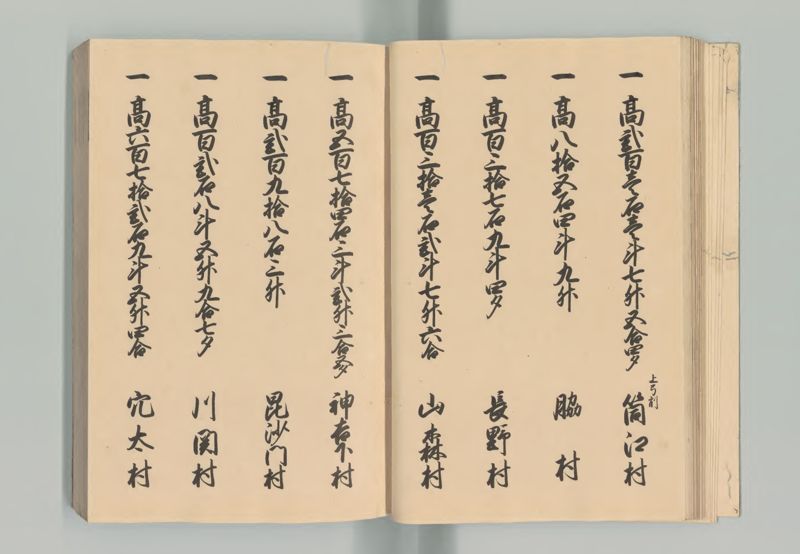 一 高弐百壱石壱斗七升五合四夕 上弓削 筒江村
一 高八拾五石四斗九升 脇村
一 高百三拾七石九斗四夕 長野村
一 高百三拾壱石弐斗七升六合 山森村
一 高五百七拾四石三斗弐升三合五夕 神吉下村
一 高弐百九拾八石三升 毘沙門村
一 高百弐石八斗五升九合七夕 川関村
一 高六百七拾弐石九斗五升四合 穴太村